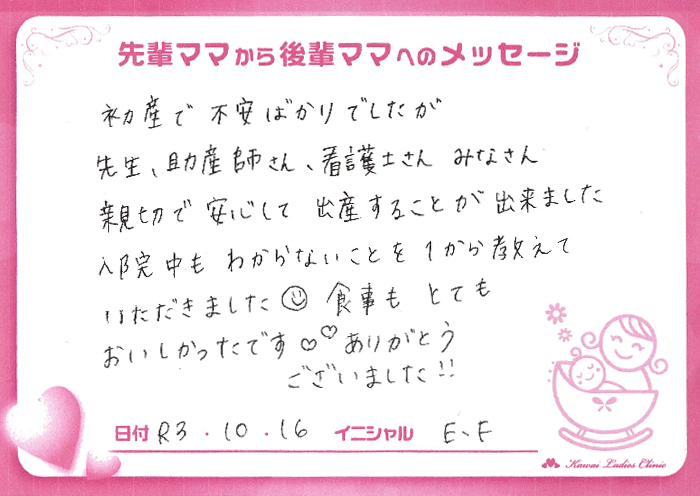 先輩ママから後輩ママへのメッセージ
初産で 不安ばかりでしたが
先生、助産師さん、看護士さん みなさん
親切で 安心して 出産することが 出来ました
入院中も わからないことを 1から教えて
いただきました☺ 食事も とても
おいしかったです♡♡ ありがとう
ございました!!
日付 R3 . 10 . 16 イニシャル E、F
Kawai Ladies Clinic